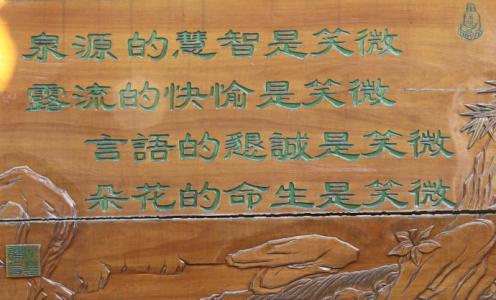 微笑是智慧的源泉
微笑是愉快的流露
微笑是誠懇的語言
微笑是生命的花朵